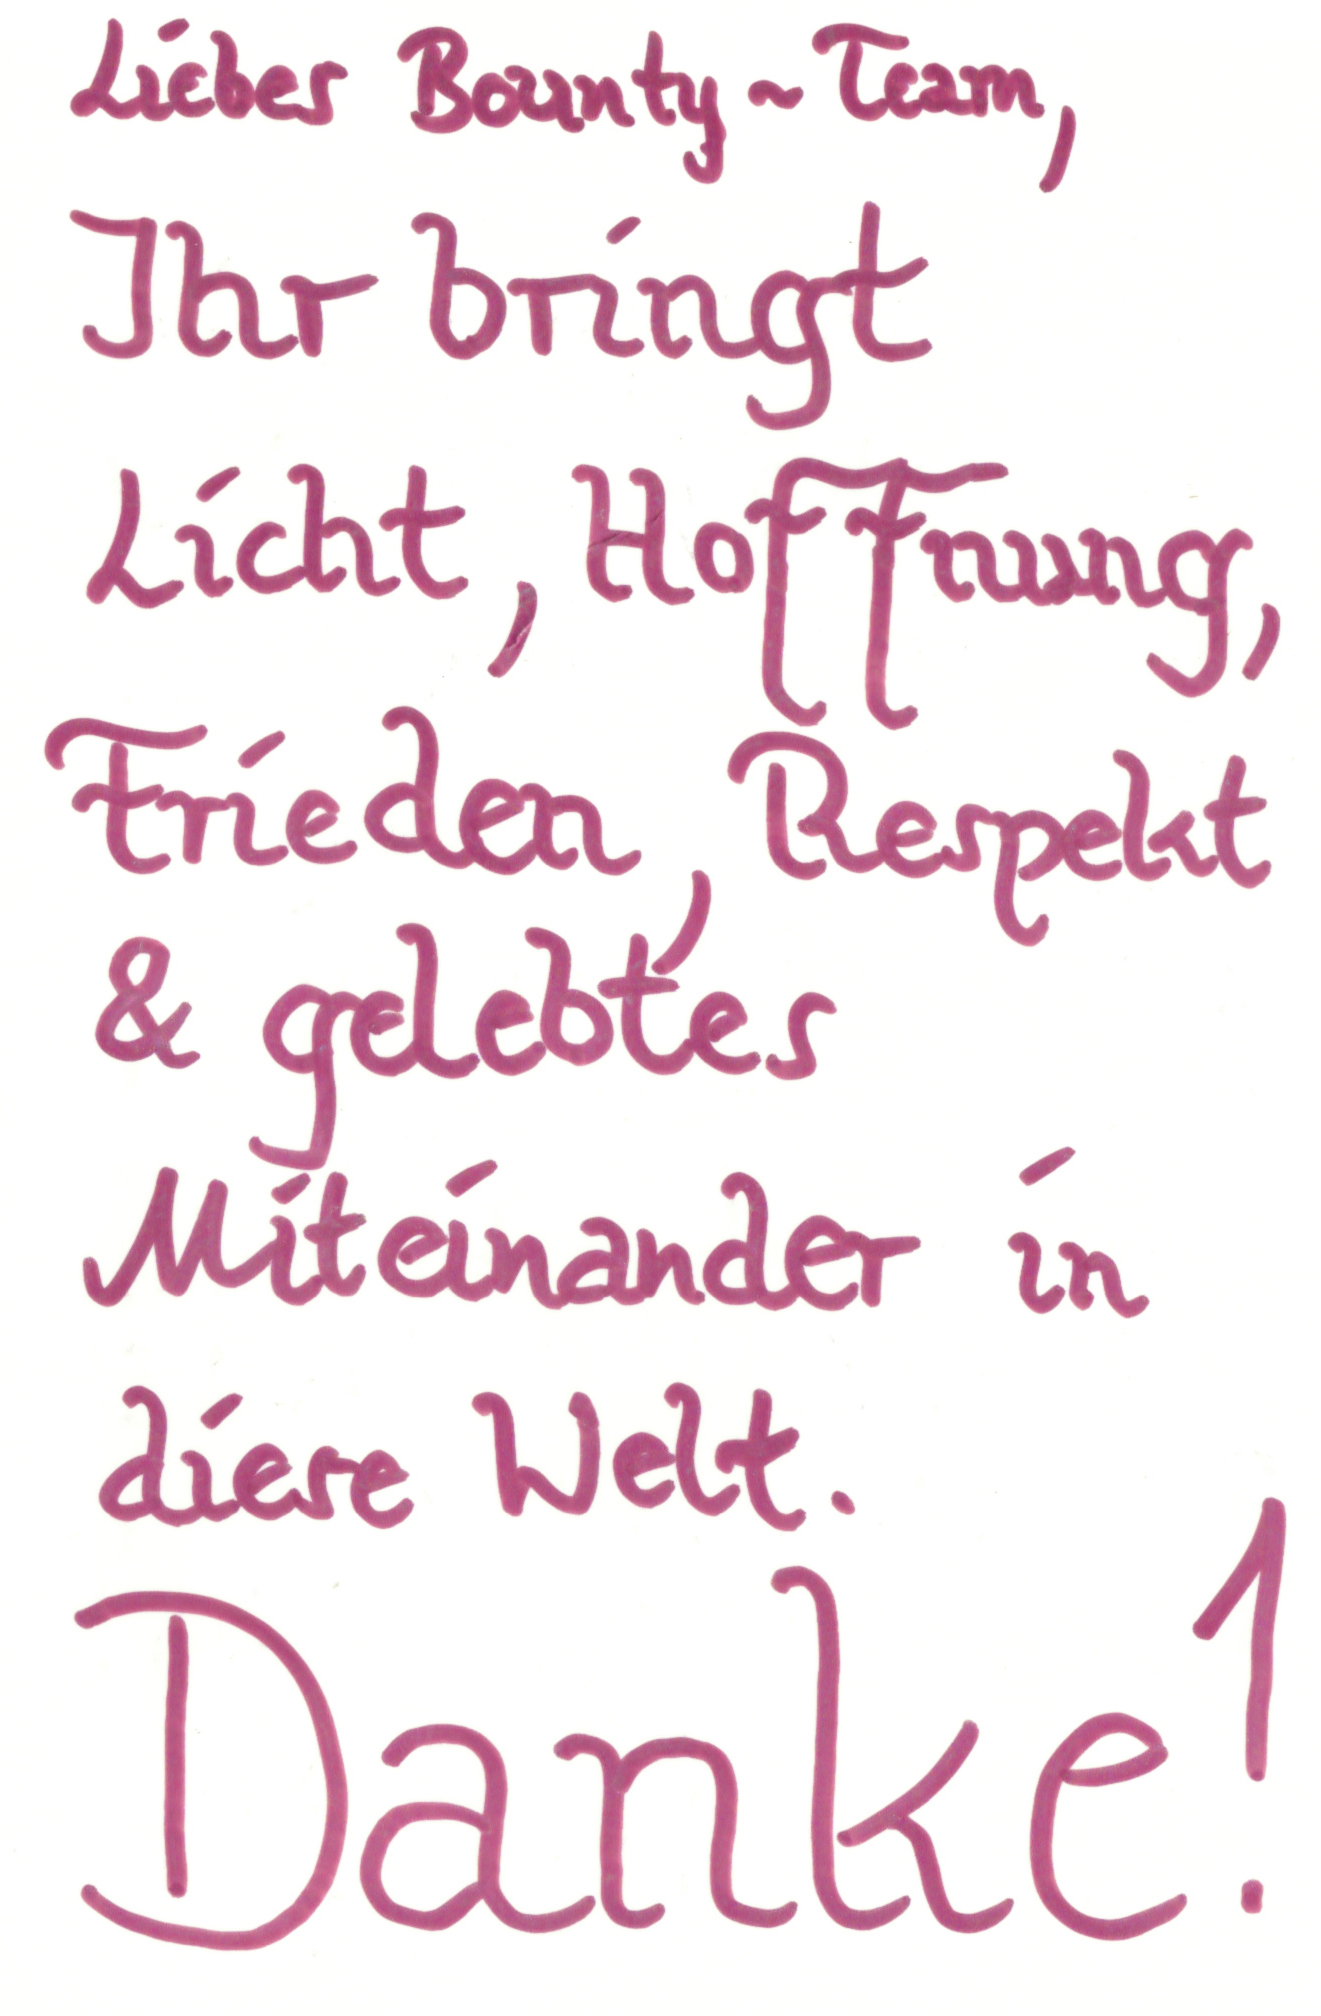 Liebes Bounty~Team,
Ihr bringt
Licht, Hoffnung,
Frieden, Respekt
& gelebtes
Miteinander in
diese Welt.
Danke!